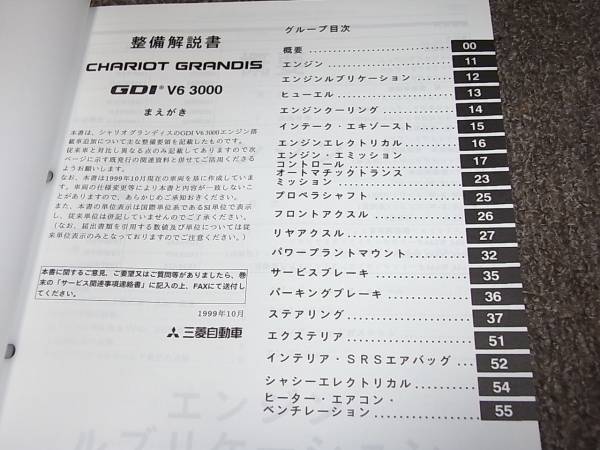 整備解説書
CHARIOT GRANDIS
GDI® V6 3000
まえがき
本書は、シャリオグランディスのGDI V6 3000エンジン搭
載車追加について主な整備要領を記載したものです。
従来車と対比し異なる点のみ記載してありますので次
ページに示す既発行の関連資料と併せてご活用くださる
ようお願いします。
なお、本書は1999年10月現在の車両を基に作成していま
す。車両の仕様変更等により本書と内容が一致しないこ
とがありますので、あらかじめご承知おきください。
また、本書の単位表示は国際単位系であるSI単位で表示
し、従来単位は併記していませんのでご了承ください。
(なお、届出書類を引用する数値及び単位については従
来単位表示のみとなっておりますのでご注意ください。)
本書に関するご意見、ご要望又はご質問等がありましたら、巻
末の「サービス関連事項連絡書」に記入の上、FAXにて送付し
てください。
1999年10月
三菱自動車
グループ目次
概要 00
エンジン 11
エンジンルブリケーション 12
ヒューエル 13
エンジンクーリング 14
インテーク・エキゾースト 15
エンジンエレクトリカル 16
エンジン・エミッション
コントロール 17
オートマチックトランス
ミッション 23
プロペラシャフト 25
フロントアクスル 26
リヤアクスル 27
パワープラントマウント 32
サービスブレーキ 35
パーキングブレーキ 36
ステアリング 37
エクステリア 51
インテリア・SRSエアバッグ 52
シャシーエレクトリカル 54
ヒーター・エアコン・
ベンチレーション 55